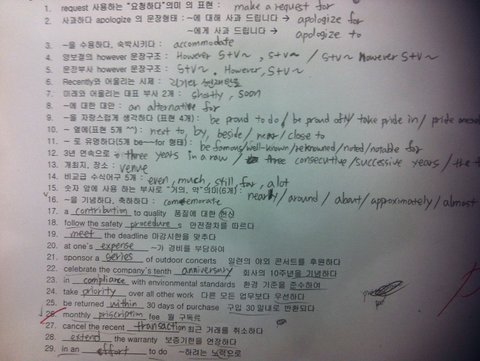 1. request 사용하는 "요청하다"의미 의 표현 : make a request for
2. 사과하다 apologize 의 문장형태 : ~에 대해 사과 드립니다 → apologize for
~에게 사과 드립니다 → apologize to
3. ~을 수용하다, 숙박시키다 : accommodate
4. 양보절의 however 문장구조 : However S+V~, S+V~ / S+V~ however S+V~
5. 문장부사 however 문장구조 : S+V~. However, S+V~
6. Recently와 어울리는 시제 : 과거, 현재완료
7. 미래와 어울리는 대표 부사 2개 : shortly, soon
8. ~에 대한 대안 : an alternative for
9. ~을 자랑스럽게 생각하다 (표현 4개) : be proud to do / be proud of / take pride in / pride
10. ~ 옆에(표현 5개 ^^) : next to, by, beside / near / close to
11. ~ 로 유명하다(5개 be~~for 형태) : be famous/well-known/renowned/noted/notable for
12. 3년 연속으로 : three years in a row / three consecutive/successive years / the
13. 개최지, 장소 : venue
14. 비교급 수식어구 5개 : even, much, still, far, a lot
15. 숫자 앞에 사용 하는 부사로 "거의, 약"의미(6개) : nearly/around/about/approximately/almost
16. ~을 기념하다, 축하하다 : commemorate
17. a contribution to quality 품질에 대한 헌신
18. follow the safety procedures 안전정차를 따르다
19. meet the deadline 마감시한을 맞추다
20. at one's expense ~가 경비를 부담하여
21. sponsor a series of outdoor concerts 일련의 야외 콘서트를 후원하다
22. celebrate the company's tenth anniversary 회사의 10주년을 기념하다
23. in compliance with environmental standards 환경 기준을 준수하여
24. take priority over all other work 다른 모든 업무보다 우선하다
25. be returned within 30 days of purchase 구입 30일내로 반환되다
26. monthly priscription fee 월 구독료
27. cancel the recent transaction 최근 거래를 취소하다
28. extend the warranty 보증기한을 연장하다
29. in an effort to do ~하려는 노력으로